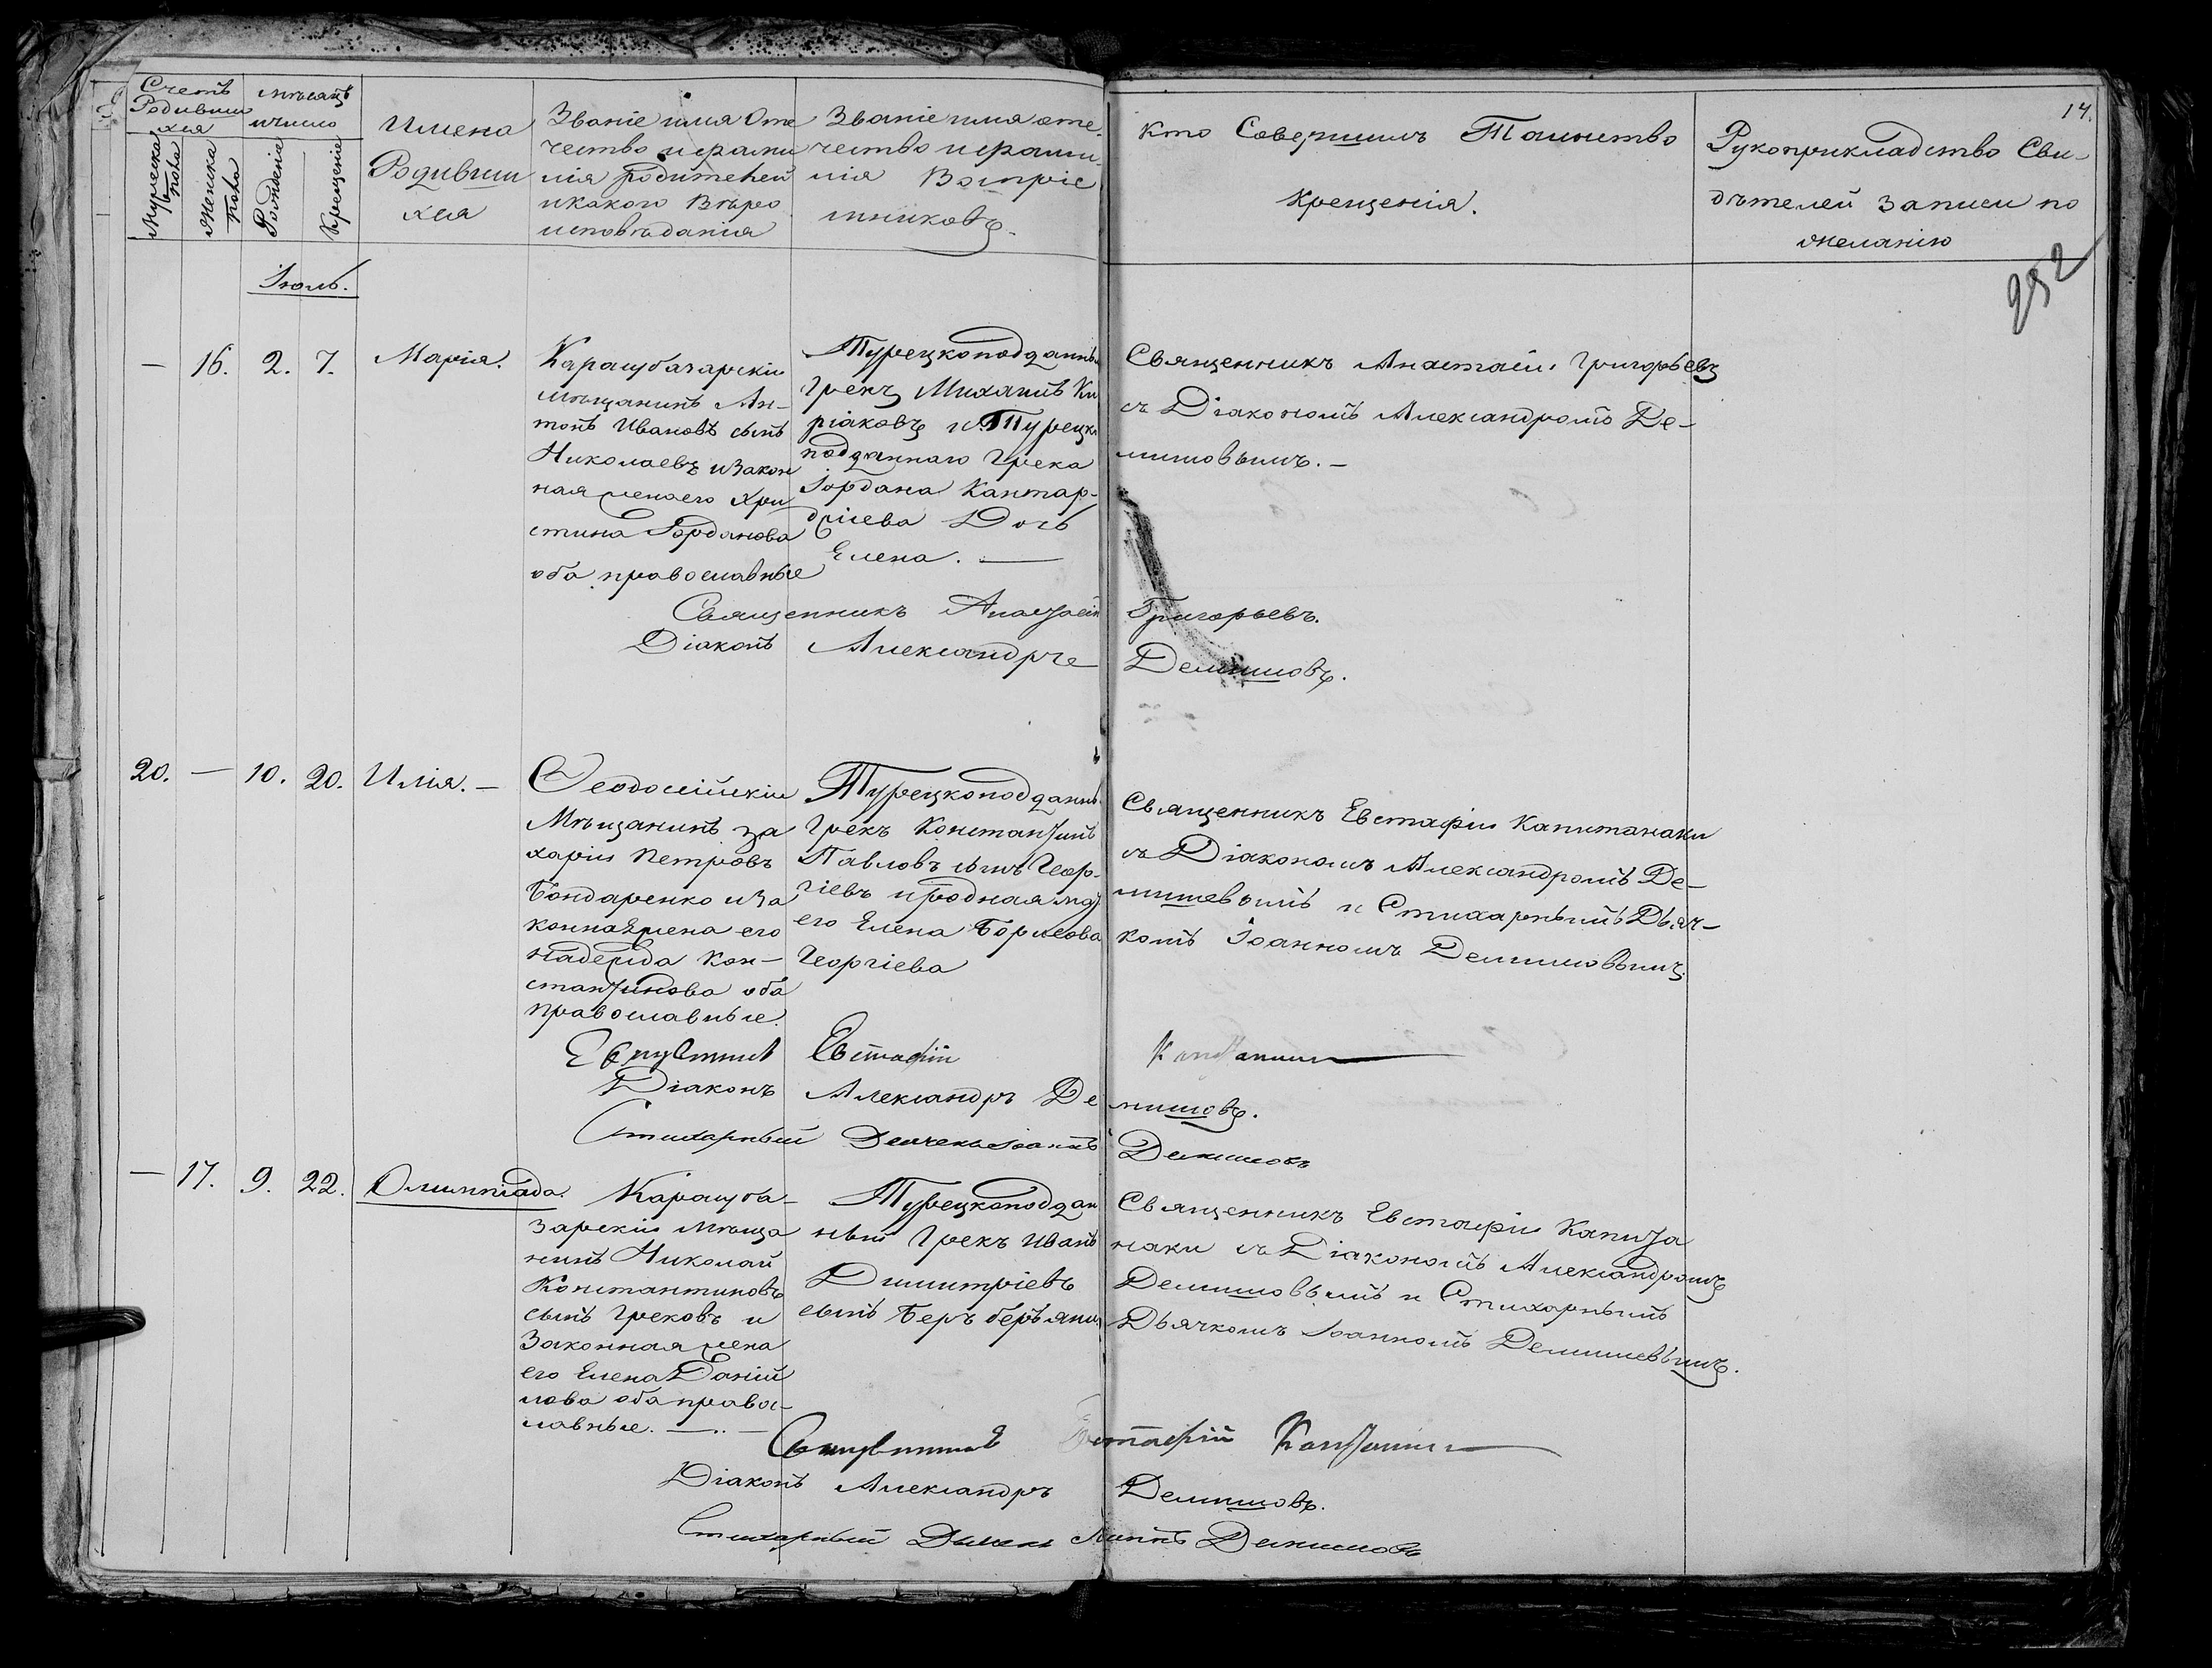 Счетъ
Родивши
хся
Мужеска
пола
Женска
пола
мѣсяцъ
и число
Рожденія
Крещенія
Имена
Родивши
хся
Званіе имя Оте
чество и фами
лія родителей
и какого Вѣро
исповѣданія
Званіе имя оте.
чество и фами.
лія Воспріе
мниковъ.
Кто Совершилъ Таинство
Крещенія.
14.
Рукоприкладство Сви-
дѣтелей записи по
желанію
292
Іюль.
— 16. 2. 7. Марія.
Карасубазарскій
мѣщанинъ Ан-
тонъ Ивановъ сынъ
Николаевъ и закон
ная жена его Хри
стина Іорданова
оба православные
Турецкоподданны
Грекъ Михаилъ Ки
ріаковъ и Турецко
подданнаго Грека
Іордана Кантар-
джіева Дочь
Елена. —
Священникъ Анастасій Григорьевъ
съ Діакономъ Александромъ Де-
мишовымъ. —
Священникъ Анастасій Григорьевъ.
Діаконъ Александръ Демишовъ.
20. — 10. 20. Илія. —
Ѳеодосійскій
Мѣщанинъ За
харій Петровъ
Бондаренко и за
конная жена его
Надежда Кон-
стантинова оба
православные.
Турецкоподданны
Грекъ Константинъ
Павловъ сынъ Геор-
гіевъ и родная
его Елена Борисова
Георгіева
Священникъ Евстафій Капитанаки
съ Діакономъ Александромъ Де-
мишевымъ и Стихарнымъ Дьяч-
комъ Іоанномъ Демишовымъ.
Евстафій
Діаконъ Александръ Демишовъ.
Стихарный Дьячекъ Іоаннъ Демишовъ
— 17. 9. 22. Олимпіада.
Карасуба-
зарскій мѣща
нинъ Николай
Константиновъ
сынъ Грековъ и
Законная жена
его Елена Даніи
лова оба право-
славные. —..—
Турецкоподдан
ный Грекъ Иванъ
Димитріевъ
сынъ
Священникъ Евстафій Капита
наки съ Діакономъ Александромъ
Демишовымъ и Стихарнымъ
Дьячкомъ Іоанномъ Демишевымъ.
Евстафій
Діаконъ Александръ Демишовъ.
Стихарный Дьячекъ Іоаннъ Демишовъ